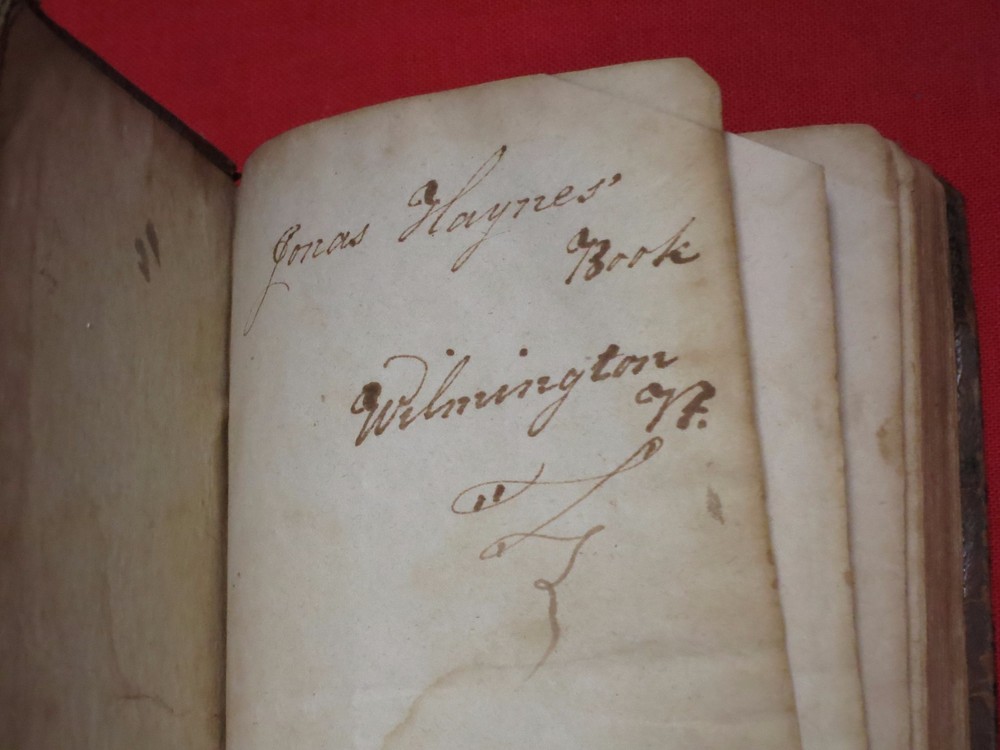 Jonas Haynes'
Book
Wilmington
Vt.